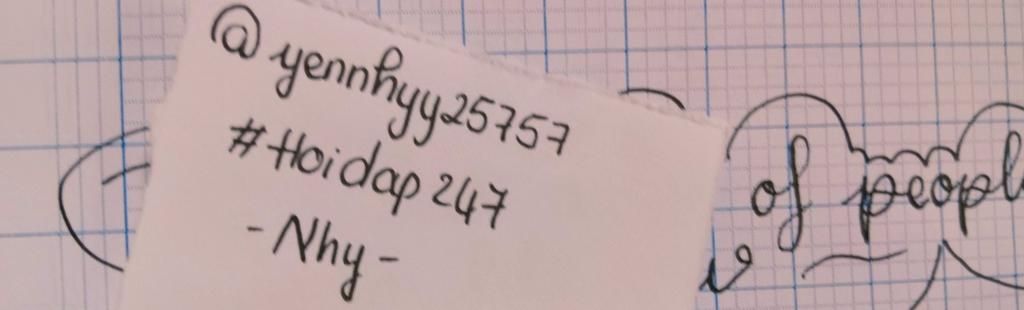 @yennhyy25757
#Hoidap247
-Nhy-
of peopl